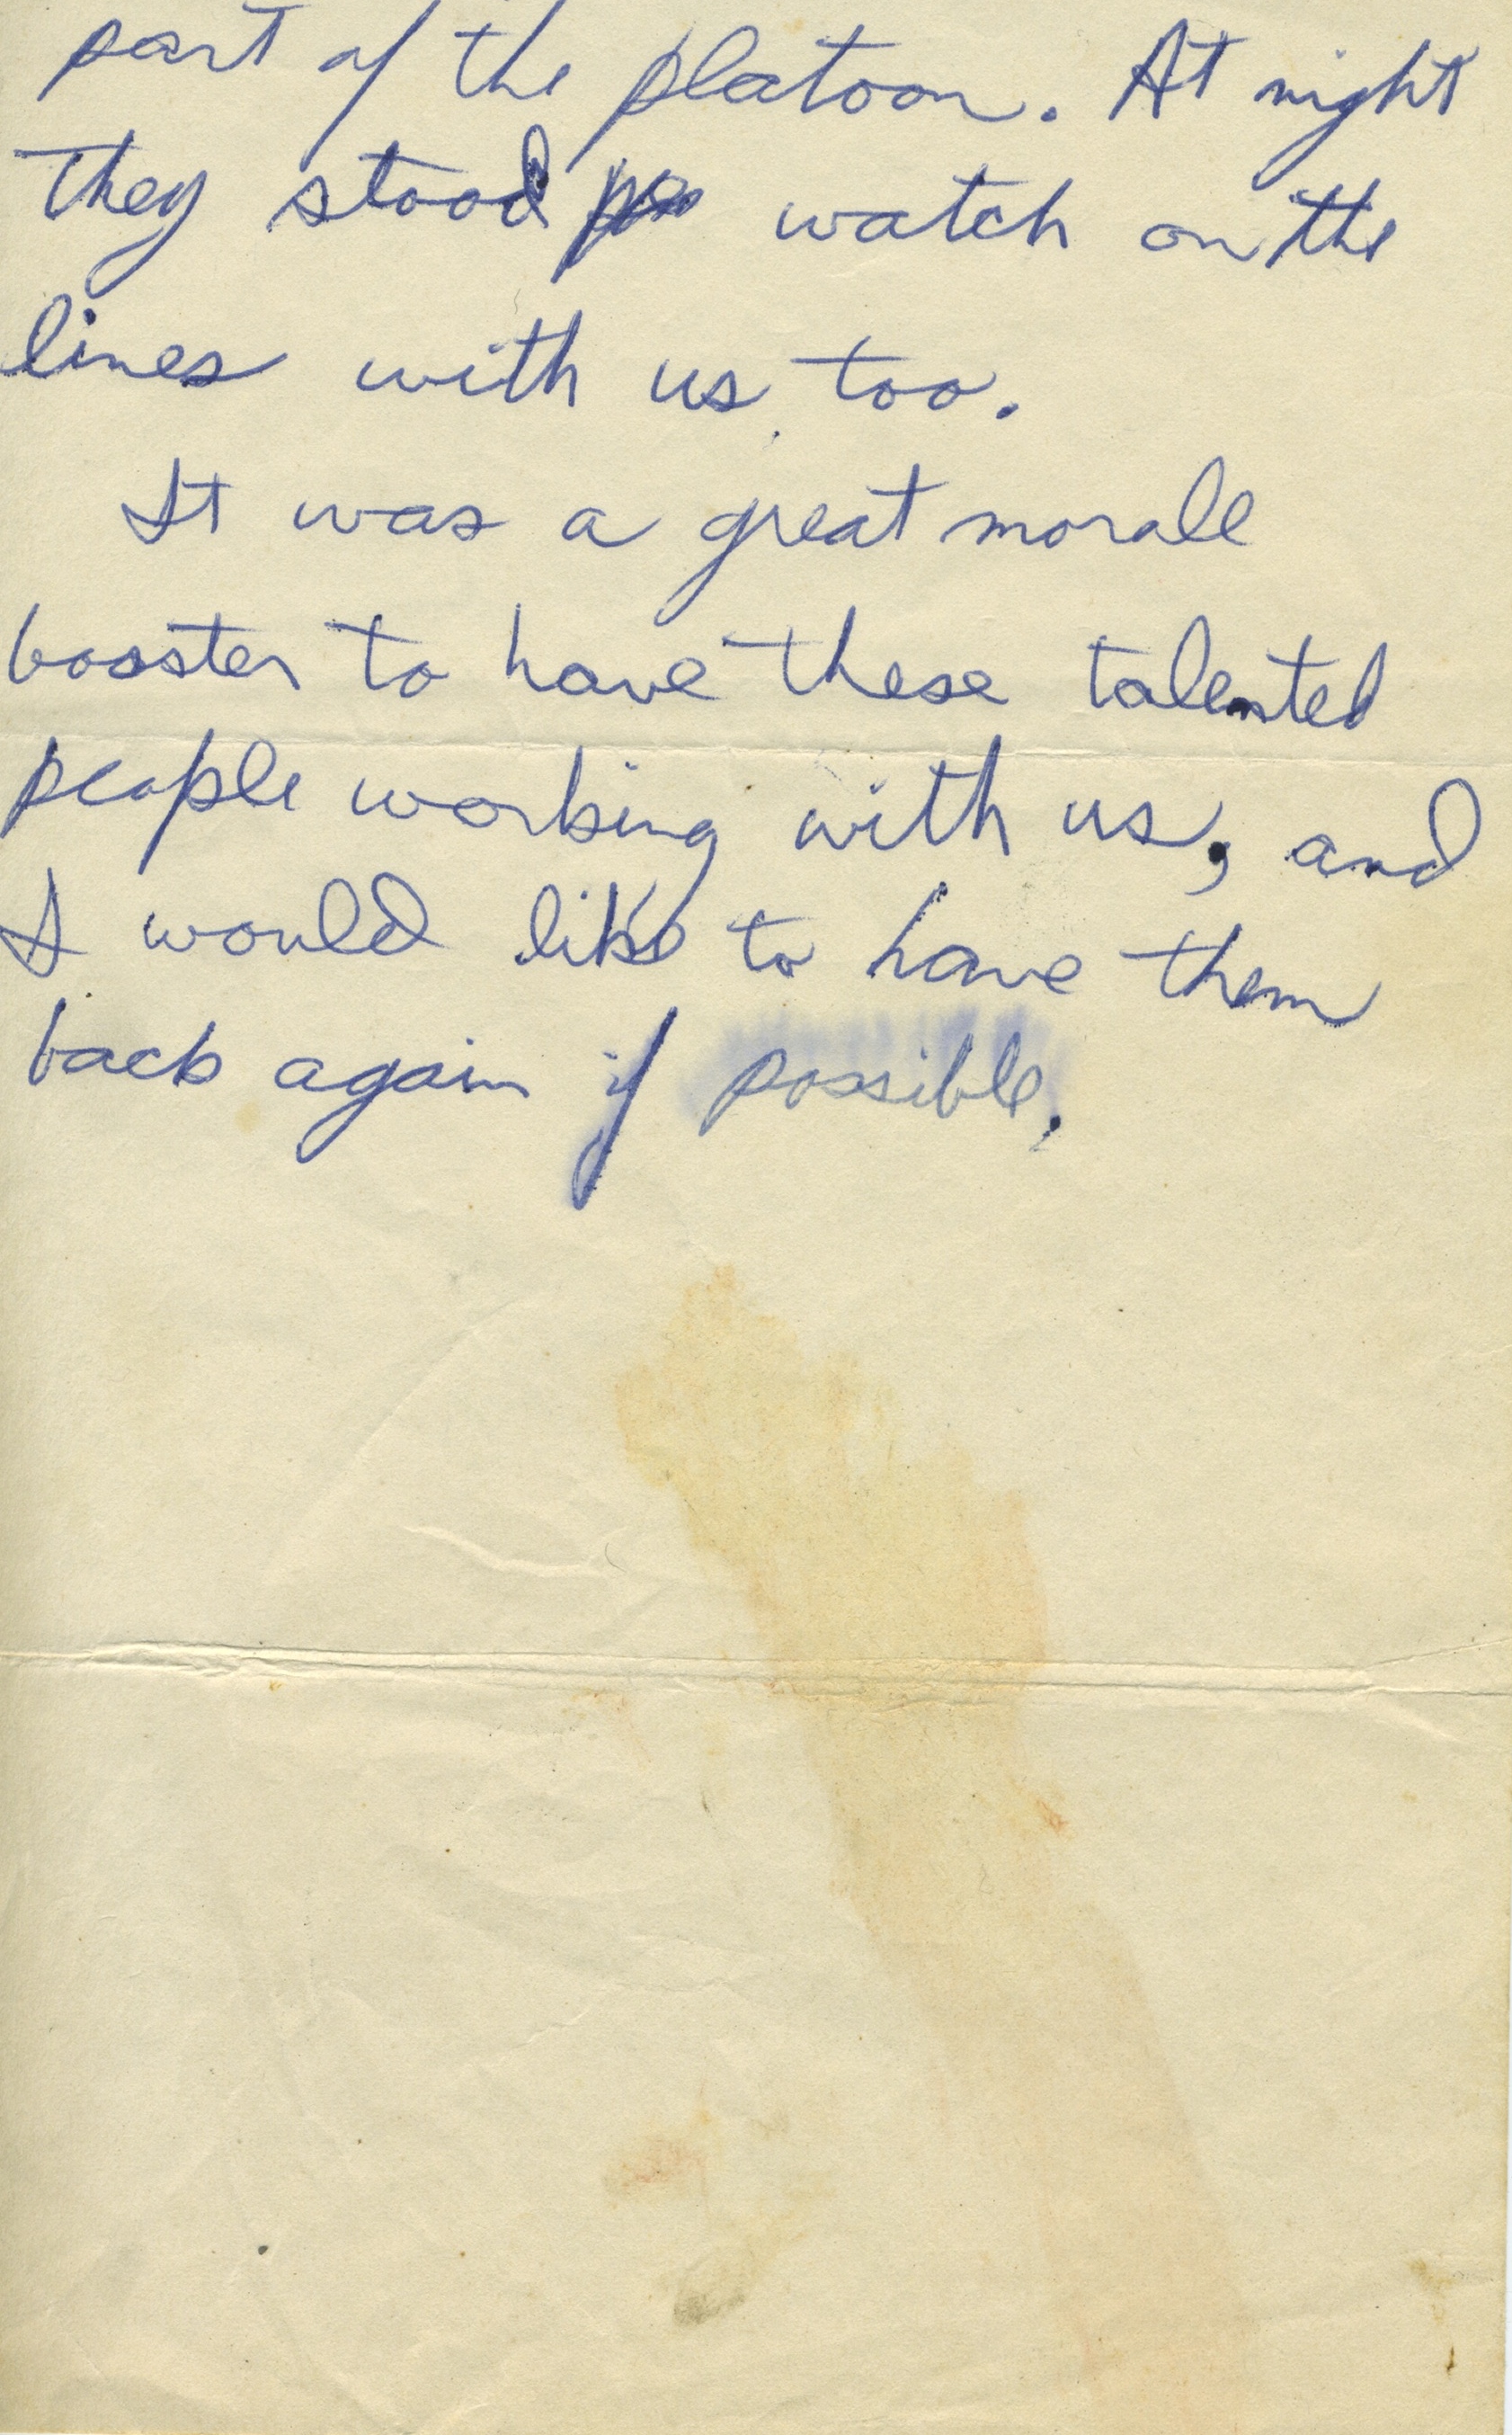 part of the platoon. At night
they stood watch on the
lines with us too.
It was a great morale
booster to have these talented
people working with us, and
I would like to have them
back again if possible.